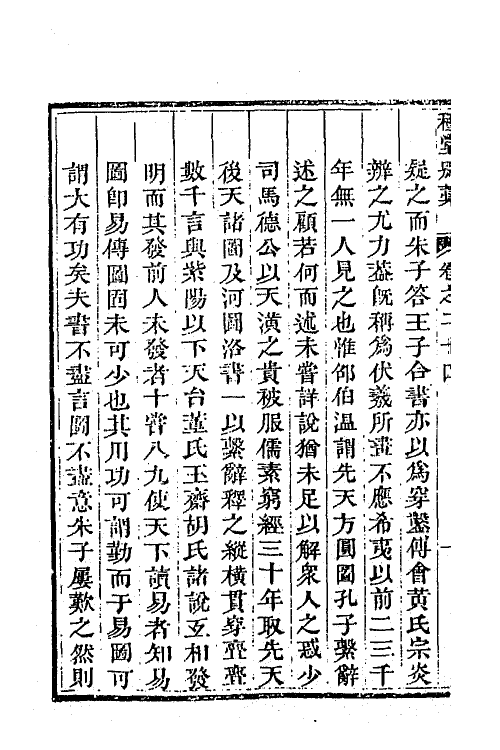 卷之二十四
疑之而朱子答王子合書亦以爲穿鑿傅會黄氏宗炎
辨之尤力葢旣稱爲伏羲所畫不應希夷以前二三千
年無一人見之也惟邵伯温謂先天方圓圖孔子繫辭
述之顧若何而述未嘗詳說猶未足以解衆人之惑少
司馬德公以天潢之貴被服儒素窮經三十年取先天
後天諸圖及河圖洛書一以繫辭釋之縱橫貫穿亹亹
數千言與紫陽以下天台董氏玉齋胡氏諸說互相發
明而其發前人未發者十嘗八九使天下讀易者知易
圖卽易傳圖固未可少也其用功可謂勤而于易圖可
謂大有功矣夫書不盡言圖不盡意朱子屢歎之然則